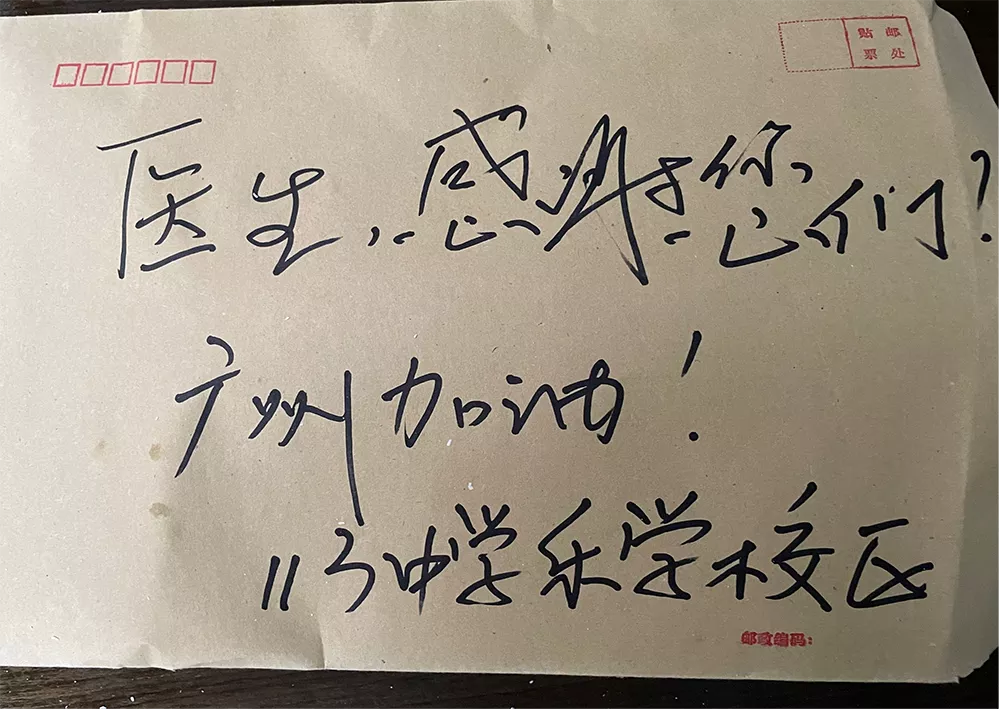 贴邮
票处
医生，感谢您们！
广州加油！
113中学乐学校区
邮政编码：